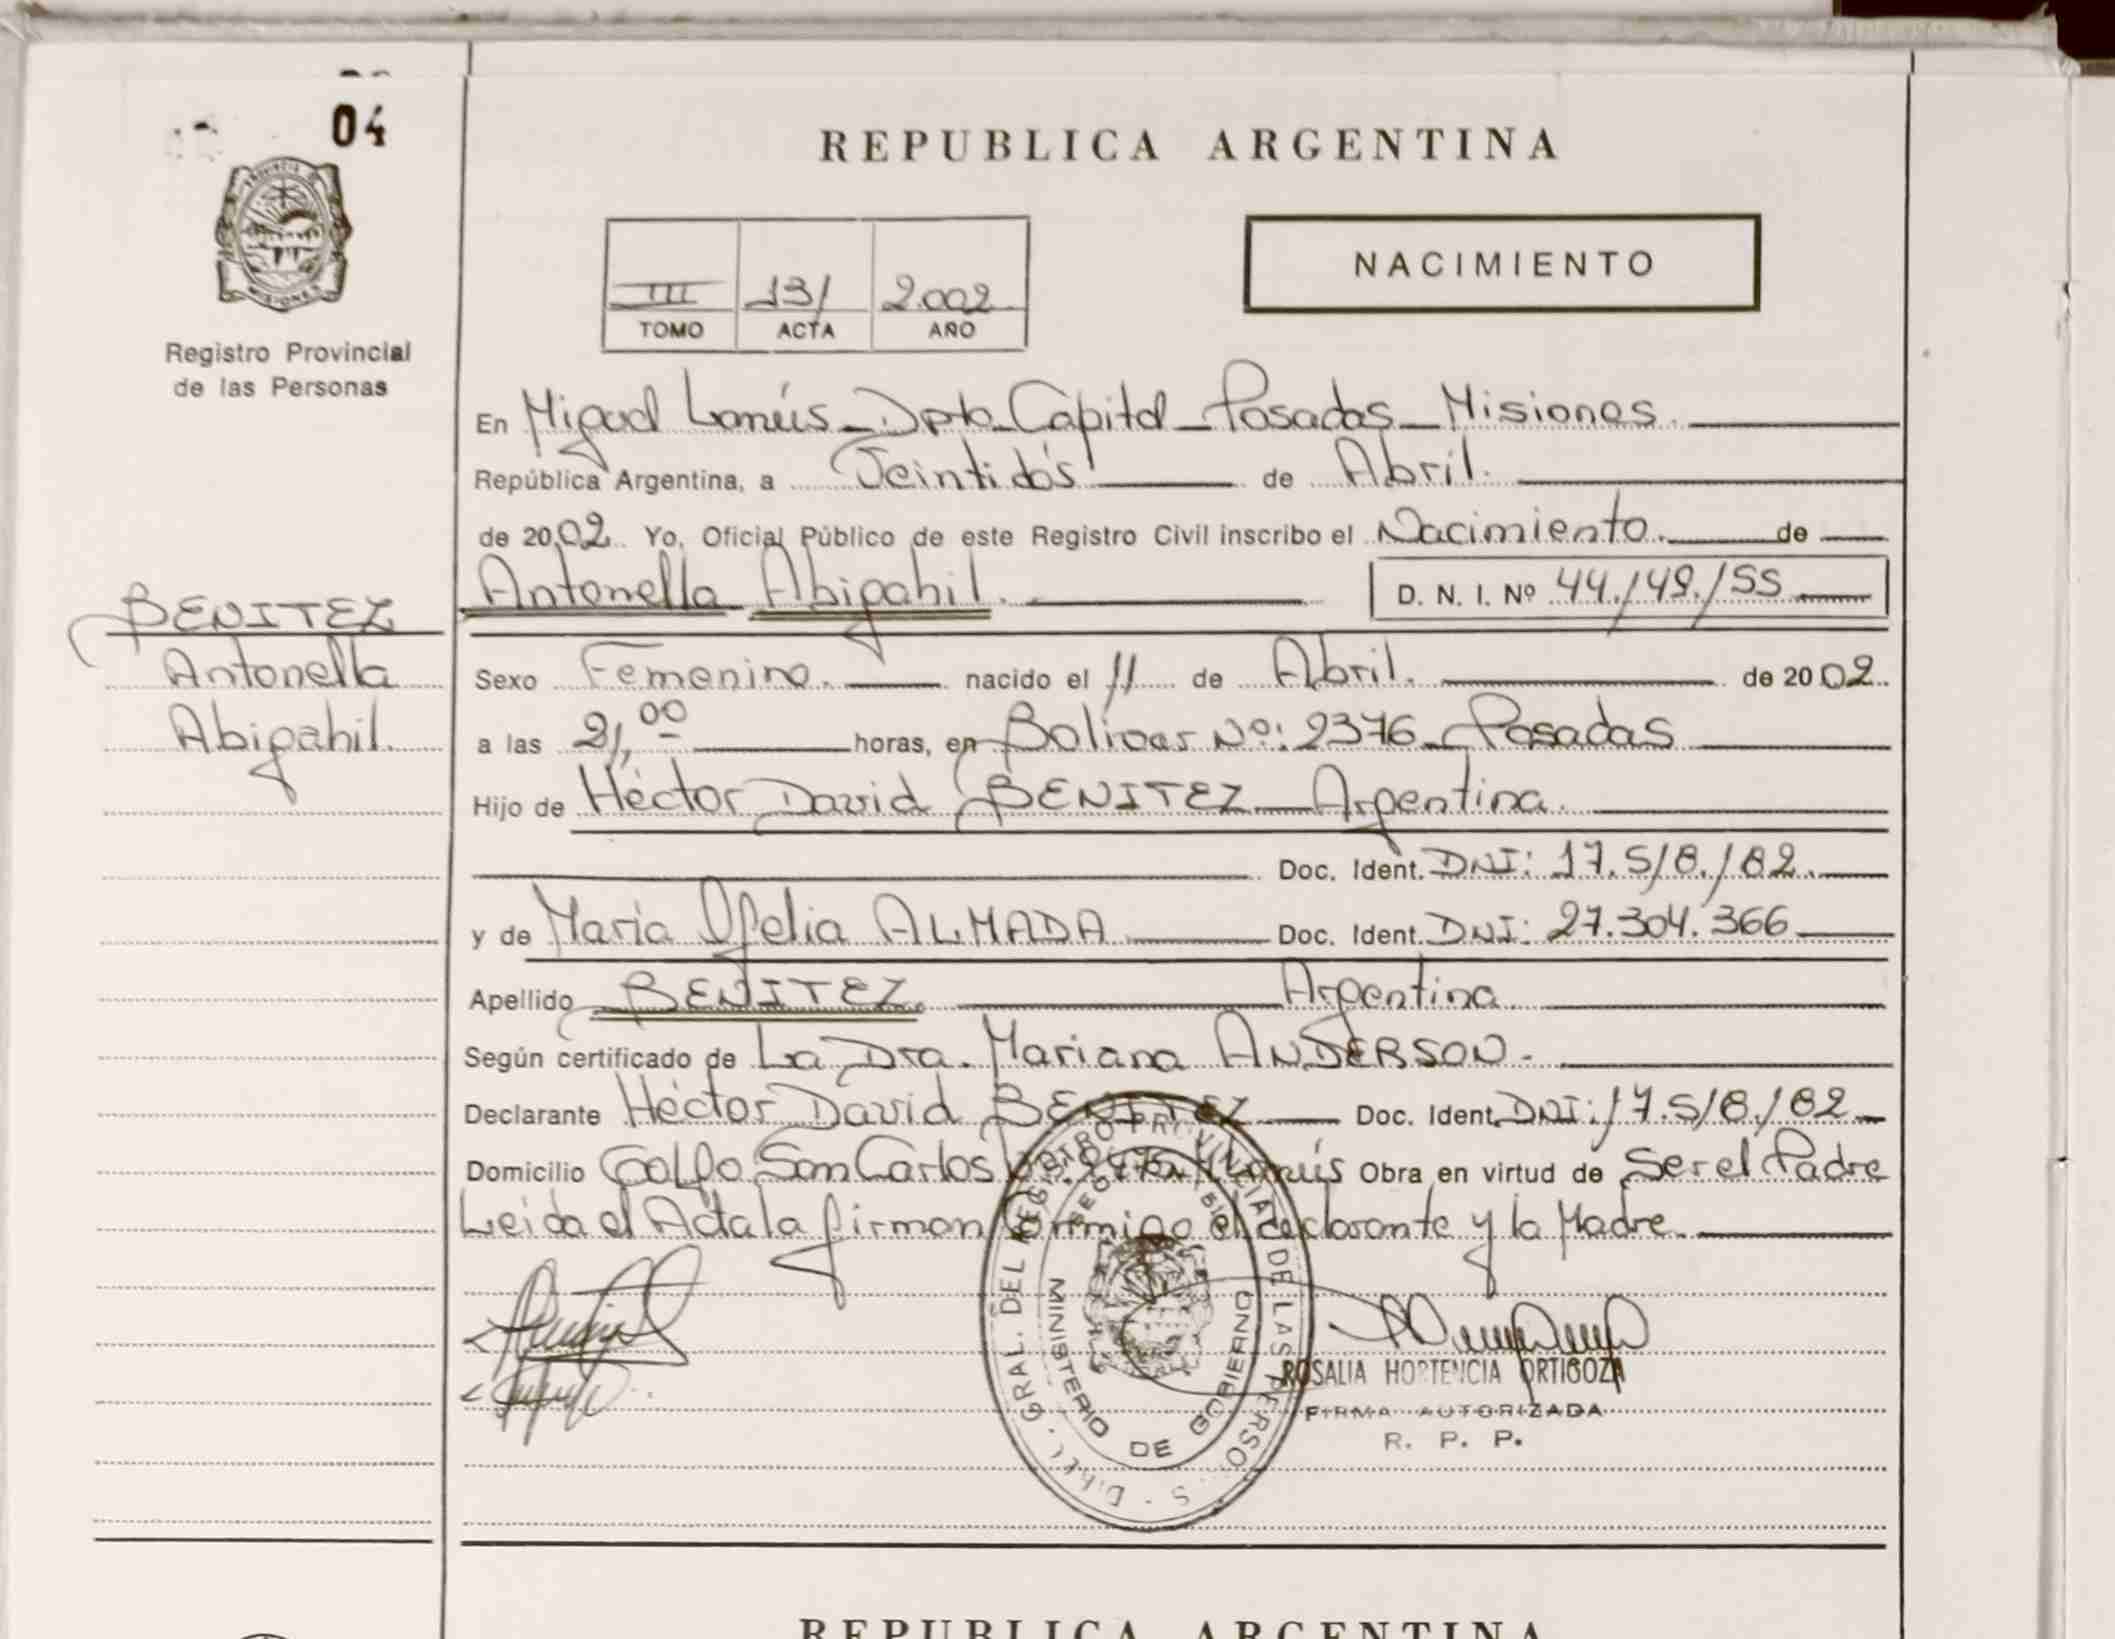 04
REPUBLICA ARGENTINA
PROVINCIA DE
MISIONES
Registro Provincial
de las Personas
III 131 2.002
TOMO ACTA AÑO
NACIMIENTO
En Miguel Lanús - Dpto. Capital - Posadas - Misiones.
República Argentina, a Veintidós de Abril.
de 2002. Yo, Oficial Público de este Registro Civil inscribo el Nacimiento. de
Antonella Abigahil. D. N. I. Nº 44.149.155
BENITEZ
Antonella
Abigahil.
Sexo Femenino. nacido el 11 de Abril. de 2002.
a las 21,00 horas, en Bolivar Nº: 2376 - Posadas
Hijo de Héctor David BENITEZ - Argentina.
Doc. Ident. DNI: 17.518.182.
y de María Ofelia ALMADA Doc. Ident. DNI: 27.304.366
Apellido BENITEZ. Argentina
Según certificado de La Dra. Mariana ANDERSON.
Declarante Héctor David BENITEZ Doc. Ident. DNI: 17.518.182
Domicilio Golfo San Carlos Lanús Obra en virtud de Ser el Padre
Leida el Acta la firman Conmigo el declarante y la Madre.
GRAL. DEL REGISTRO PROVINCIAL DE LAS PERSO S
MINISTERIO DE GOBIERNO
ROSALIA HORTENCIA ORTIGOZA
FIRMA AUTORIZADA
R. P. P.
REPUBLICA ARGENTINA